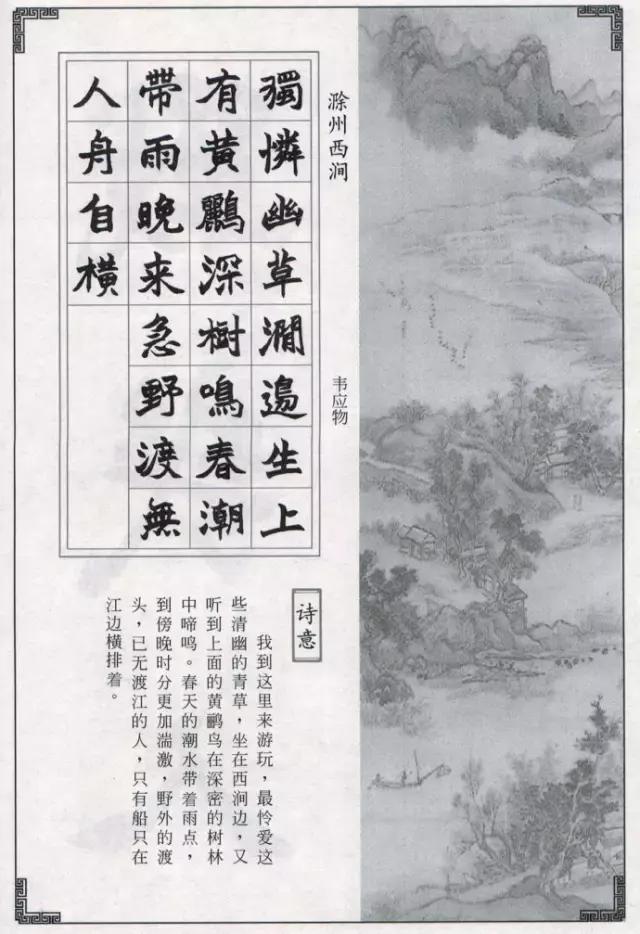 滁州西涧
韦应物
獨憐幽草澗邊生上
有黃鸝深樹鳴春潮
帶雨晚来急野渡無
人舟自横
诗意
我到这里来游玩，最怜爱这
些清幽的青草，坐在西涧边，又
听到上面的黄鹂鸟在深密的树林
中啼鸣。春天的潮水带着雨点，
到傍晚时分更加湍激，野外的渡
头，已无渡江的人，只有船只在
江边横排着。